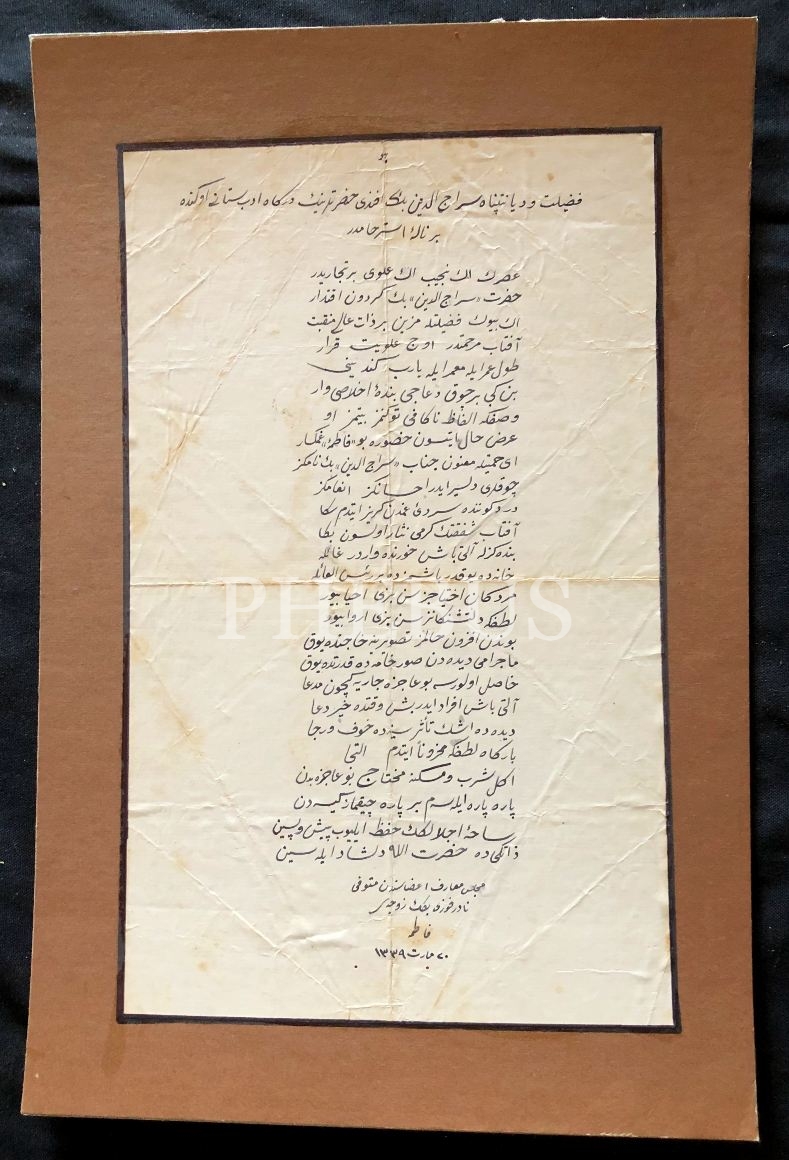 هو
فضیلت و دیانتپناه سراج الدین بك افندی حضرتلرینك درکاه ادب ستانی اوکنده
بر نالۀ استرحامدر
عصرك اك نجیب اك علوی بر تجاریدر
حضرت «سراج الدین» بك کردون اقتدار
اك بیوك فضیلتله مزین بر ذات عالی منقبت
آفتاب مرحمتدر اوج علویت قرار
طول عمر ایله معمر ایله یارب کندینی
بن کبی بر چوق دعاجی بندۀ اخلاصی وار
وصفکه الفاظ ناکافی توکنمز بیتمز او
عرض حال ایتسون حضوره بو «فاطمه» غمکسار
ای حمیتله معنون جناب «سراج الدین» بك نامکز
چوقلری دلسیر ایدر احسانکز انعامکز
درد کوننده سردئ غمدن کریز ایتدم سکا
آفتاب شفقتك کرمی نثار اولسون بکا
بنده کزله آلتی باش خورنده واردر عائله
خانه ده یوقدر باشمزده بر رئیس العائله
مردکان احتیاجز سن بزی احیا بیور
لطفکه دلتشنکانز سن بزی اروا بیور
بوندن افزون حالمز تصویرینه حاجتده یوق
ماجرامی دیده دن صور خامه ده قدرتده یوق
حاصل اولورسه بو عاجزه جاریه کچون مدعا
آلتی باش افراد ایدر بش وقتده خیر دعا
دیده ده اشك تأثر سینه ده خوف و رجا
بارکاه لطفکه محزوناً ایتدم التجا
اکل شرب و مسکنه محتاج بو عاجزه بدن
پاره پاره ایله سم بر پاره چیقماز کیسه دن
ساحۀ اجلالکك حفظ ایلیوب پیش و پسین
ذاتکی ده حضرت الله دلشاد ایله سین
مجلس معارف اعضاسندن متوفی
نادر فوزی بكك زوجه سی
فاطمه
٢٠ مارت ١٣٣٩
PHEBUS